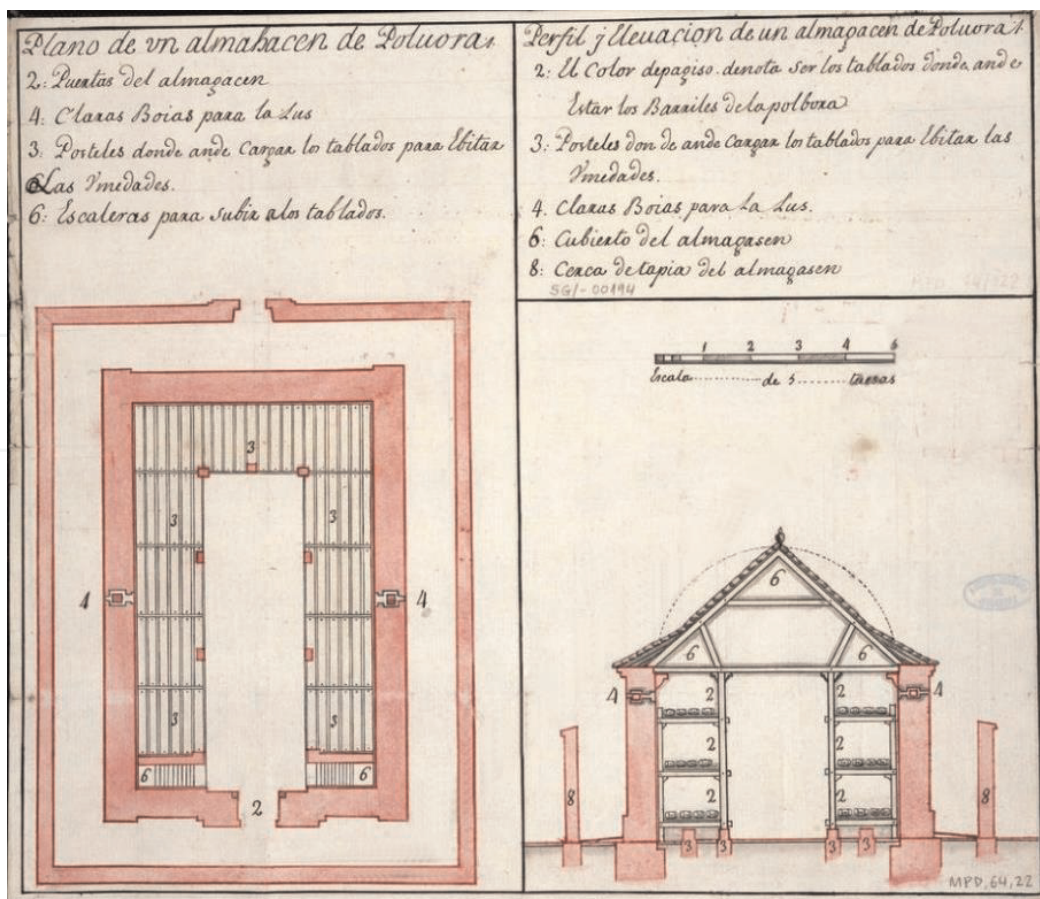 Plano de vn almahacen de Poluora 1
2: Puertas del almaçacen
4: Claras Boias para la Lus
3: Posteles donde ande Cargar los tablados para Ebitar
Las Vmedades.
6: Escaleras para subir alos tablados.
3
3
3
4
4
3
3
6
6
2
Perfil j Eleuacion de un almaçacen de Poluora 1
2: El Color depagiso. denota ser los tablados donde ande
Estar los Barriles delapolbora
3: Posteles don de ande Cargar los tablados para Ebitar las
Vmedades.
4. Claras Boias para La Lus.
6: Cubierto del almaçasen
8: Cerca detapia del almaçasen
SGI-00194
1 2 3 4 5
Escala de 5 taesas
6
6
6
4
2
2
4
2
2
8
2
2
8
3
3
3
3
MPD, 64, 22